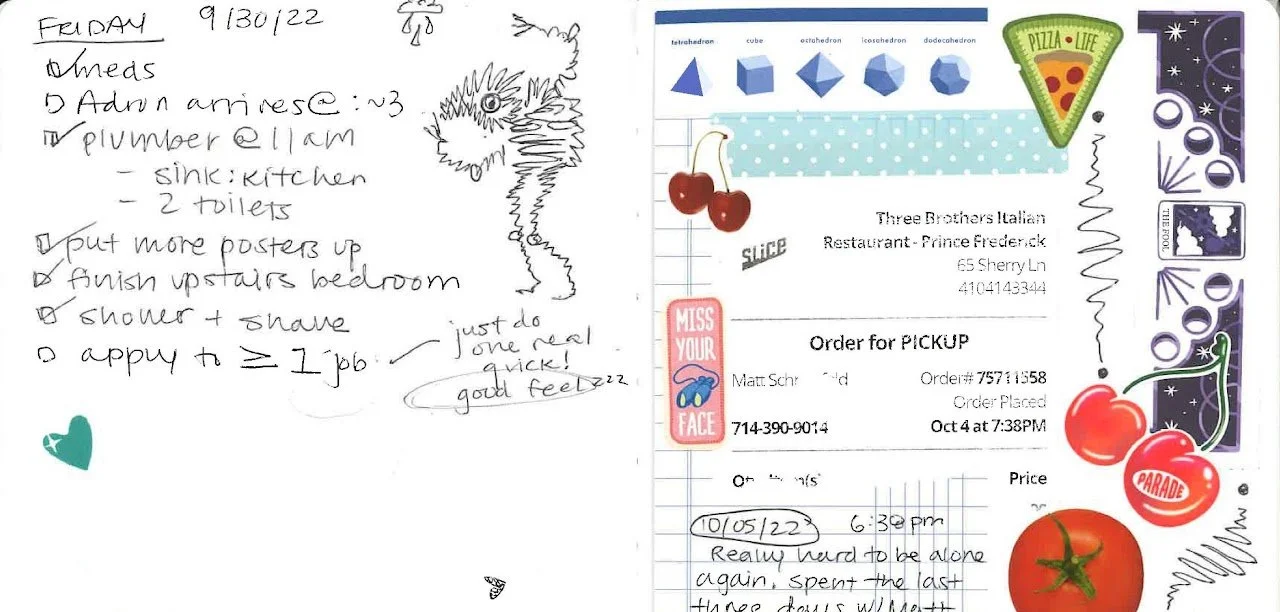 FRIDAY 9/30/22
meds
Adron arrives@:~3
plumber @ 11am
- sink: kitchen
- 2 toilets
put more posters up
finish upstairs bedroom
shower + shave
apply to ≥ 1 job
just do
one real
quick!
good feelzzz
tetrahedron cube octahedron icosahedron dodecahedron
PIZZA • LIFE
THE FOOL
SLiCE
Three Brothers Italian
Restaurant - Prince Frederick
65 Sherry Ln
4104143344
MISS
YOUR
FACE
Order for PICKUP
Matt Order# 75711558
Order Placed
714-390-9014 Oct 4 at 7:38PM
Price
PARADE
10/05/22 6:30pm
Really hard to be alone
again. spent the last
three days w/Matt